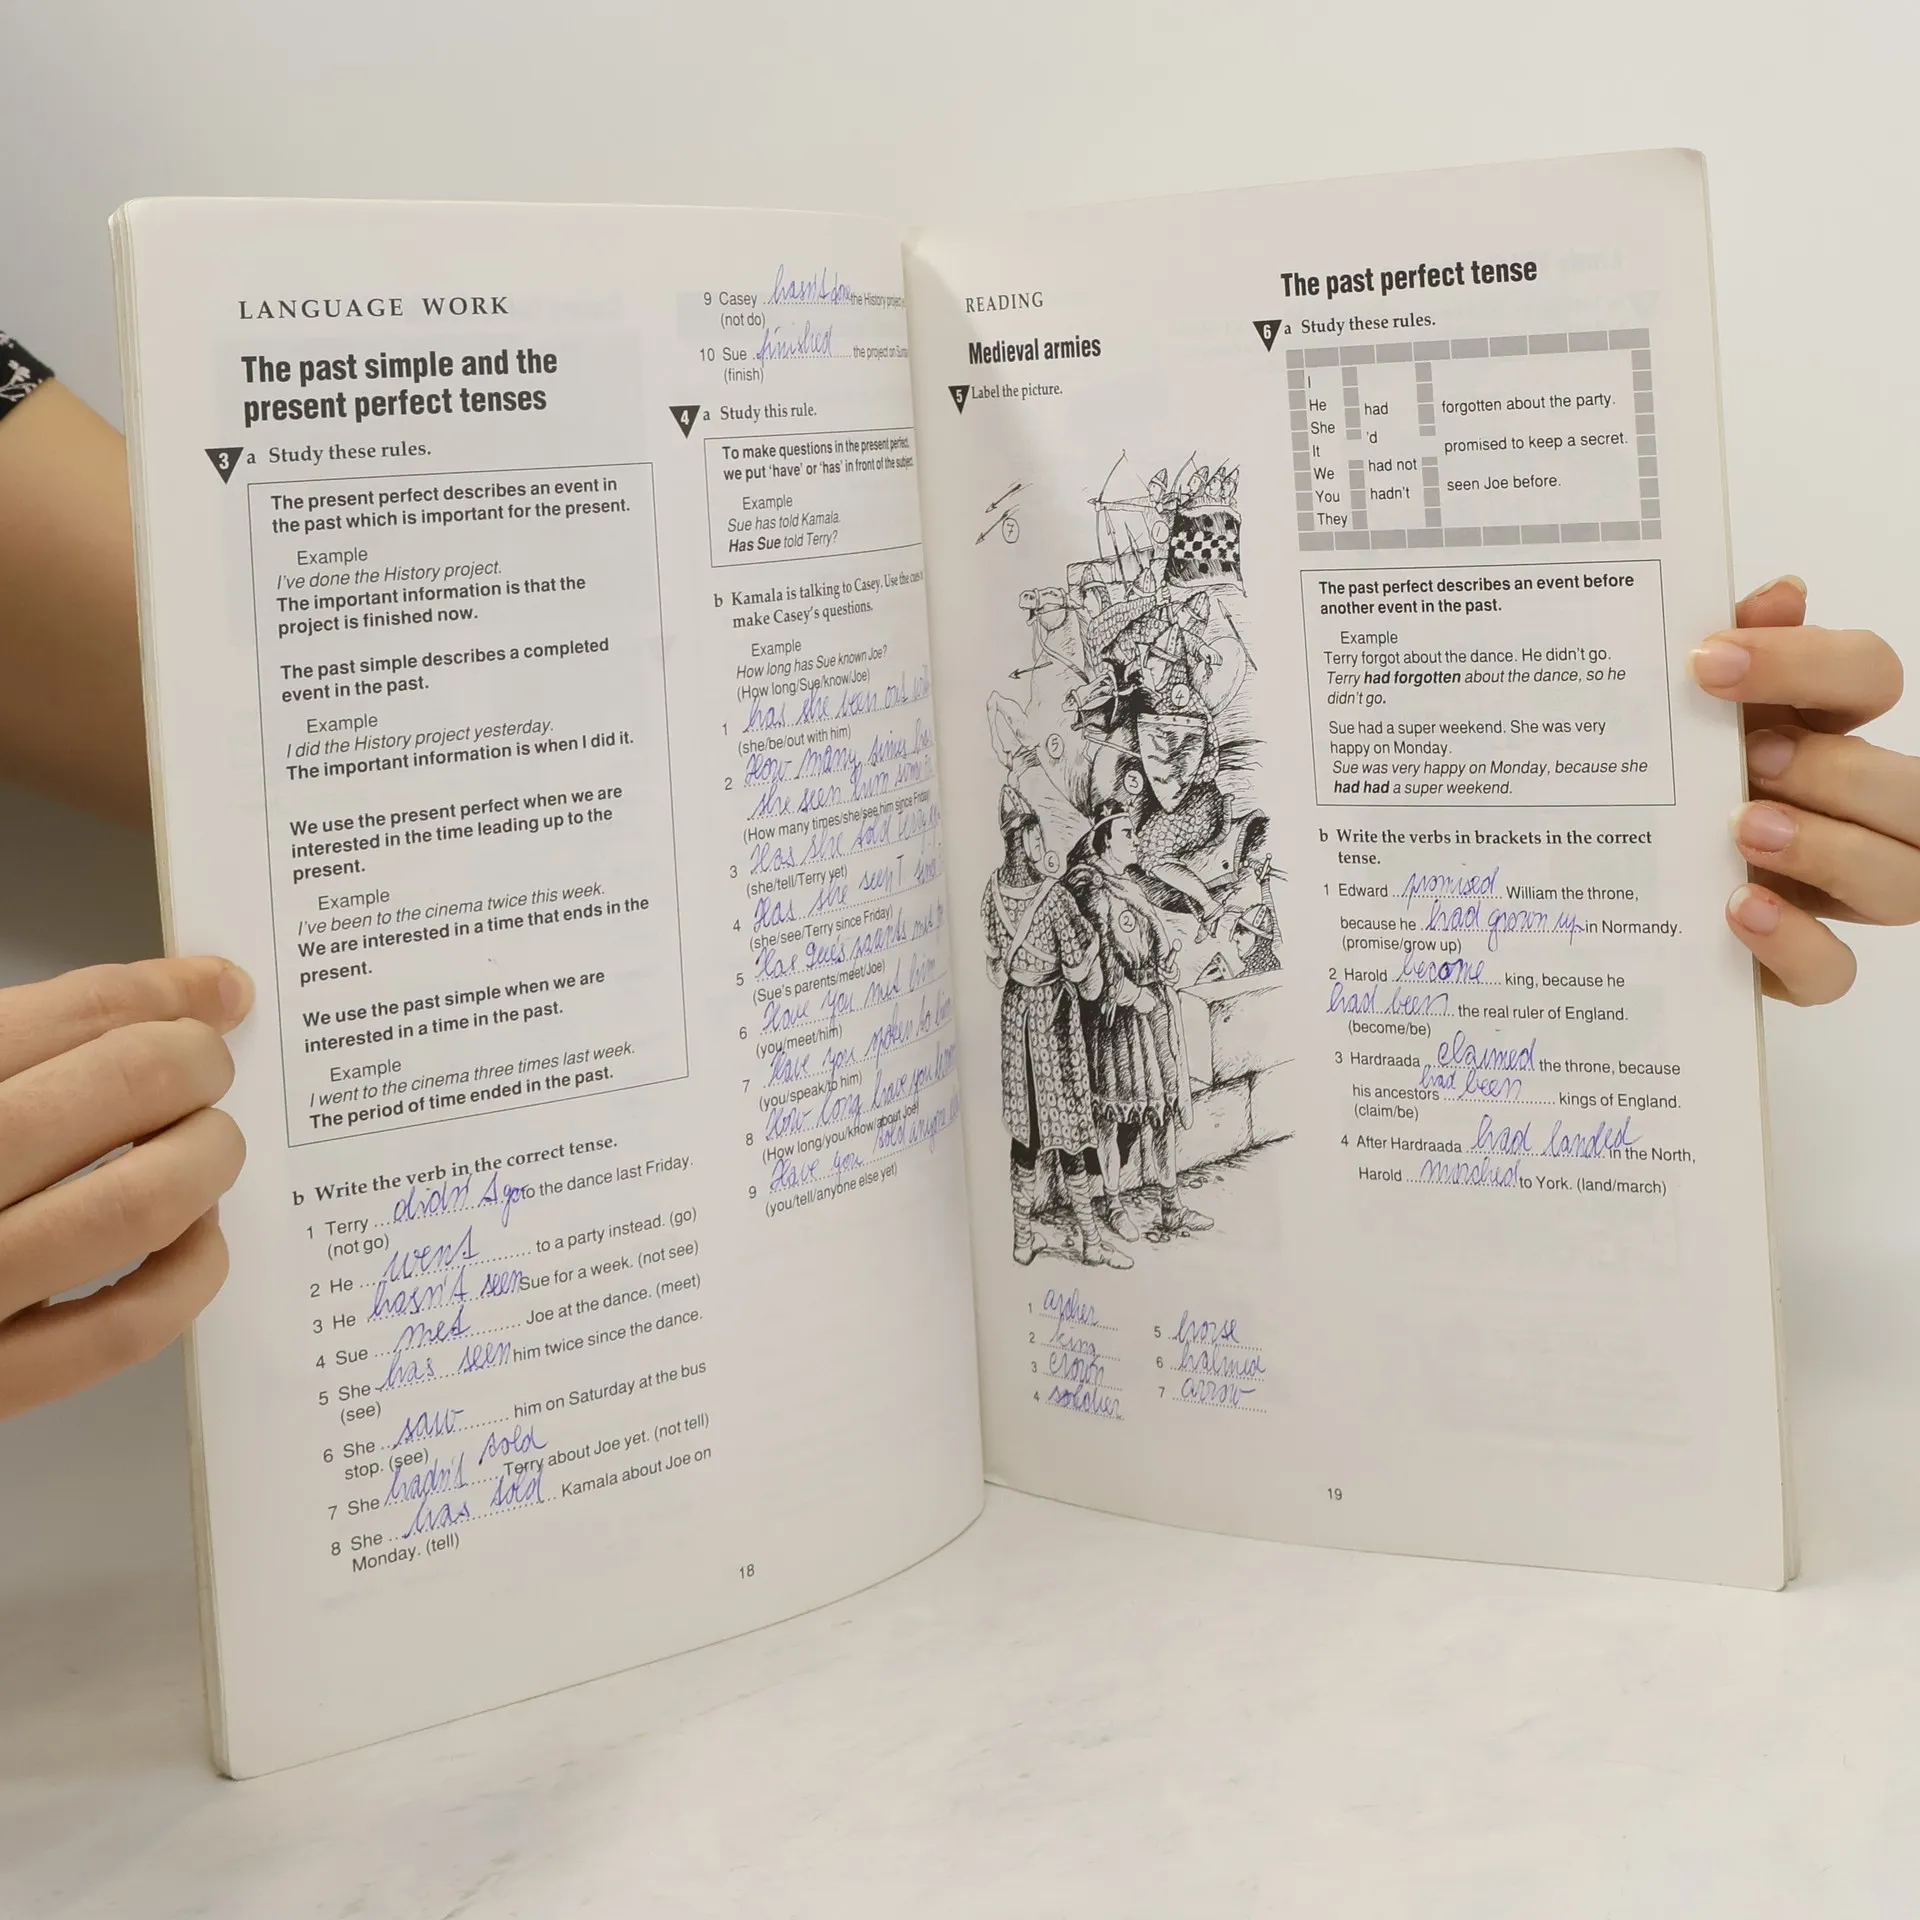 LANGUAGE WORK
The past simple and the
present perfect tenses
3 a Study these rules.
The present perfect describes an event in
the past which is important for the present.
Example
I've done the History project.
The important information is that the
project is finished now.
The past simple describes a completed
event in the past.
Example
I did the History project yesterday.
The important information is when I did it.
We use the present perfect when we are
interested in the time leading up to the
present.
Example
I've been to the cinema twice this week.
We are interested in a time that ends in the
present.
We use the past simple when we are
interested in a time in the past.
Example
I went to the cinema three times last week.
The period of time ended in the past.
b Write the verb in the correct tense.
1 Terry didn't go to the dance last Friday.
(not go)
2 He went to a party instead. (go)
3 He hasn't seen Sue for a week. (not see)
4 Sue met Joe at the dance. (meet)
5 She has seen him twice since the dance.
(see)
6 She saw him on Saturday at the bus
stop. (see)
7 She hadn't told Terry about Joe yet. (not tell)
8 She has told Kamala about Joe on
Monday. (tell)
18
9 Casey hasn't done the History project
(not do)
10 Sue finished the project on
(finish)
4 a Study this rule.
To make questions in the present perfect,
we put 'have' or 'has' in front of the subject.
Example
Sue has told Kamala.
Has Sue told Terry?
b Kamala is talking to Casey. Use the cues to
make Casey's questions.
Example
How long has Sue known Joe?
(How long/Sue/know/Joe)
1 has she been out
(she/be/out with him)
2 How many times
she seen him since
(How many times/she/see him since Friday)
3 Has she told Terry
(she/tell/Terry yet)
4 Has she seen T
(she/see/Terry since Friday)
5 Has Sue's parents met
(Sue's parents/meet/Joe)
6 Have you met him
(you/meet/him)
7 Have you spoken to him
(you/speak/to him)
8 How long have you
(How long/you/know/about Joe)
9 Have you told anyone
(you/tell/anyone else yet)
READING
Medieval armies
5 Label the picture.
7
1
4
5
3
6
2
1 archer
2 king
3 crown
4 soldier
5 horse
6
7 arrow
The past perfect tense
6 a Study these rules.
I
He
She
It
We
You
They
had
'd
had not
hadn't
forgotten about the party.
promised to keep a secret.
seen Joe before.
The past perfect describes an event before
another event in the past.
Example
Terry forgot about the dance. He didn't go.
Terry had forgotten about the dance, so he
didn't go.
Sue had a super weekend. She was very
happy on Monday.
Sue was very happy on Monday, because she
had had a super weekend.
b Write the verbs in brackets in the correct
tense.
1 Edward promised William the throne,
because he had grown up in Normandy.
(promise/grow up)
2 Harold become king, because he
had been the real ruler of England.
(become/be)
3 Hardraada claimed the throne, because
his ancestors had been kings of England.
(claim/be)
4 After Hardraada had landed in the North,
Harold marched to York. (land/march)
19